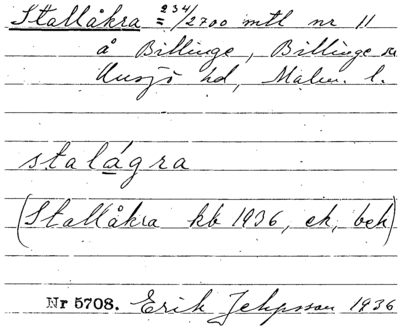 Stallåkra = 234/2700 mtl nr 11
å Billinge, Billinge sn
Onsjö hd, Malm. l.
stalágra
(Stallåkra kb 1936, ek, bek)
Nr 5708. Erik Jeppsson 1936